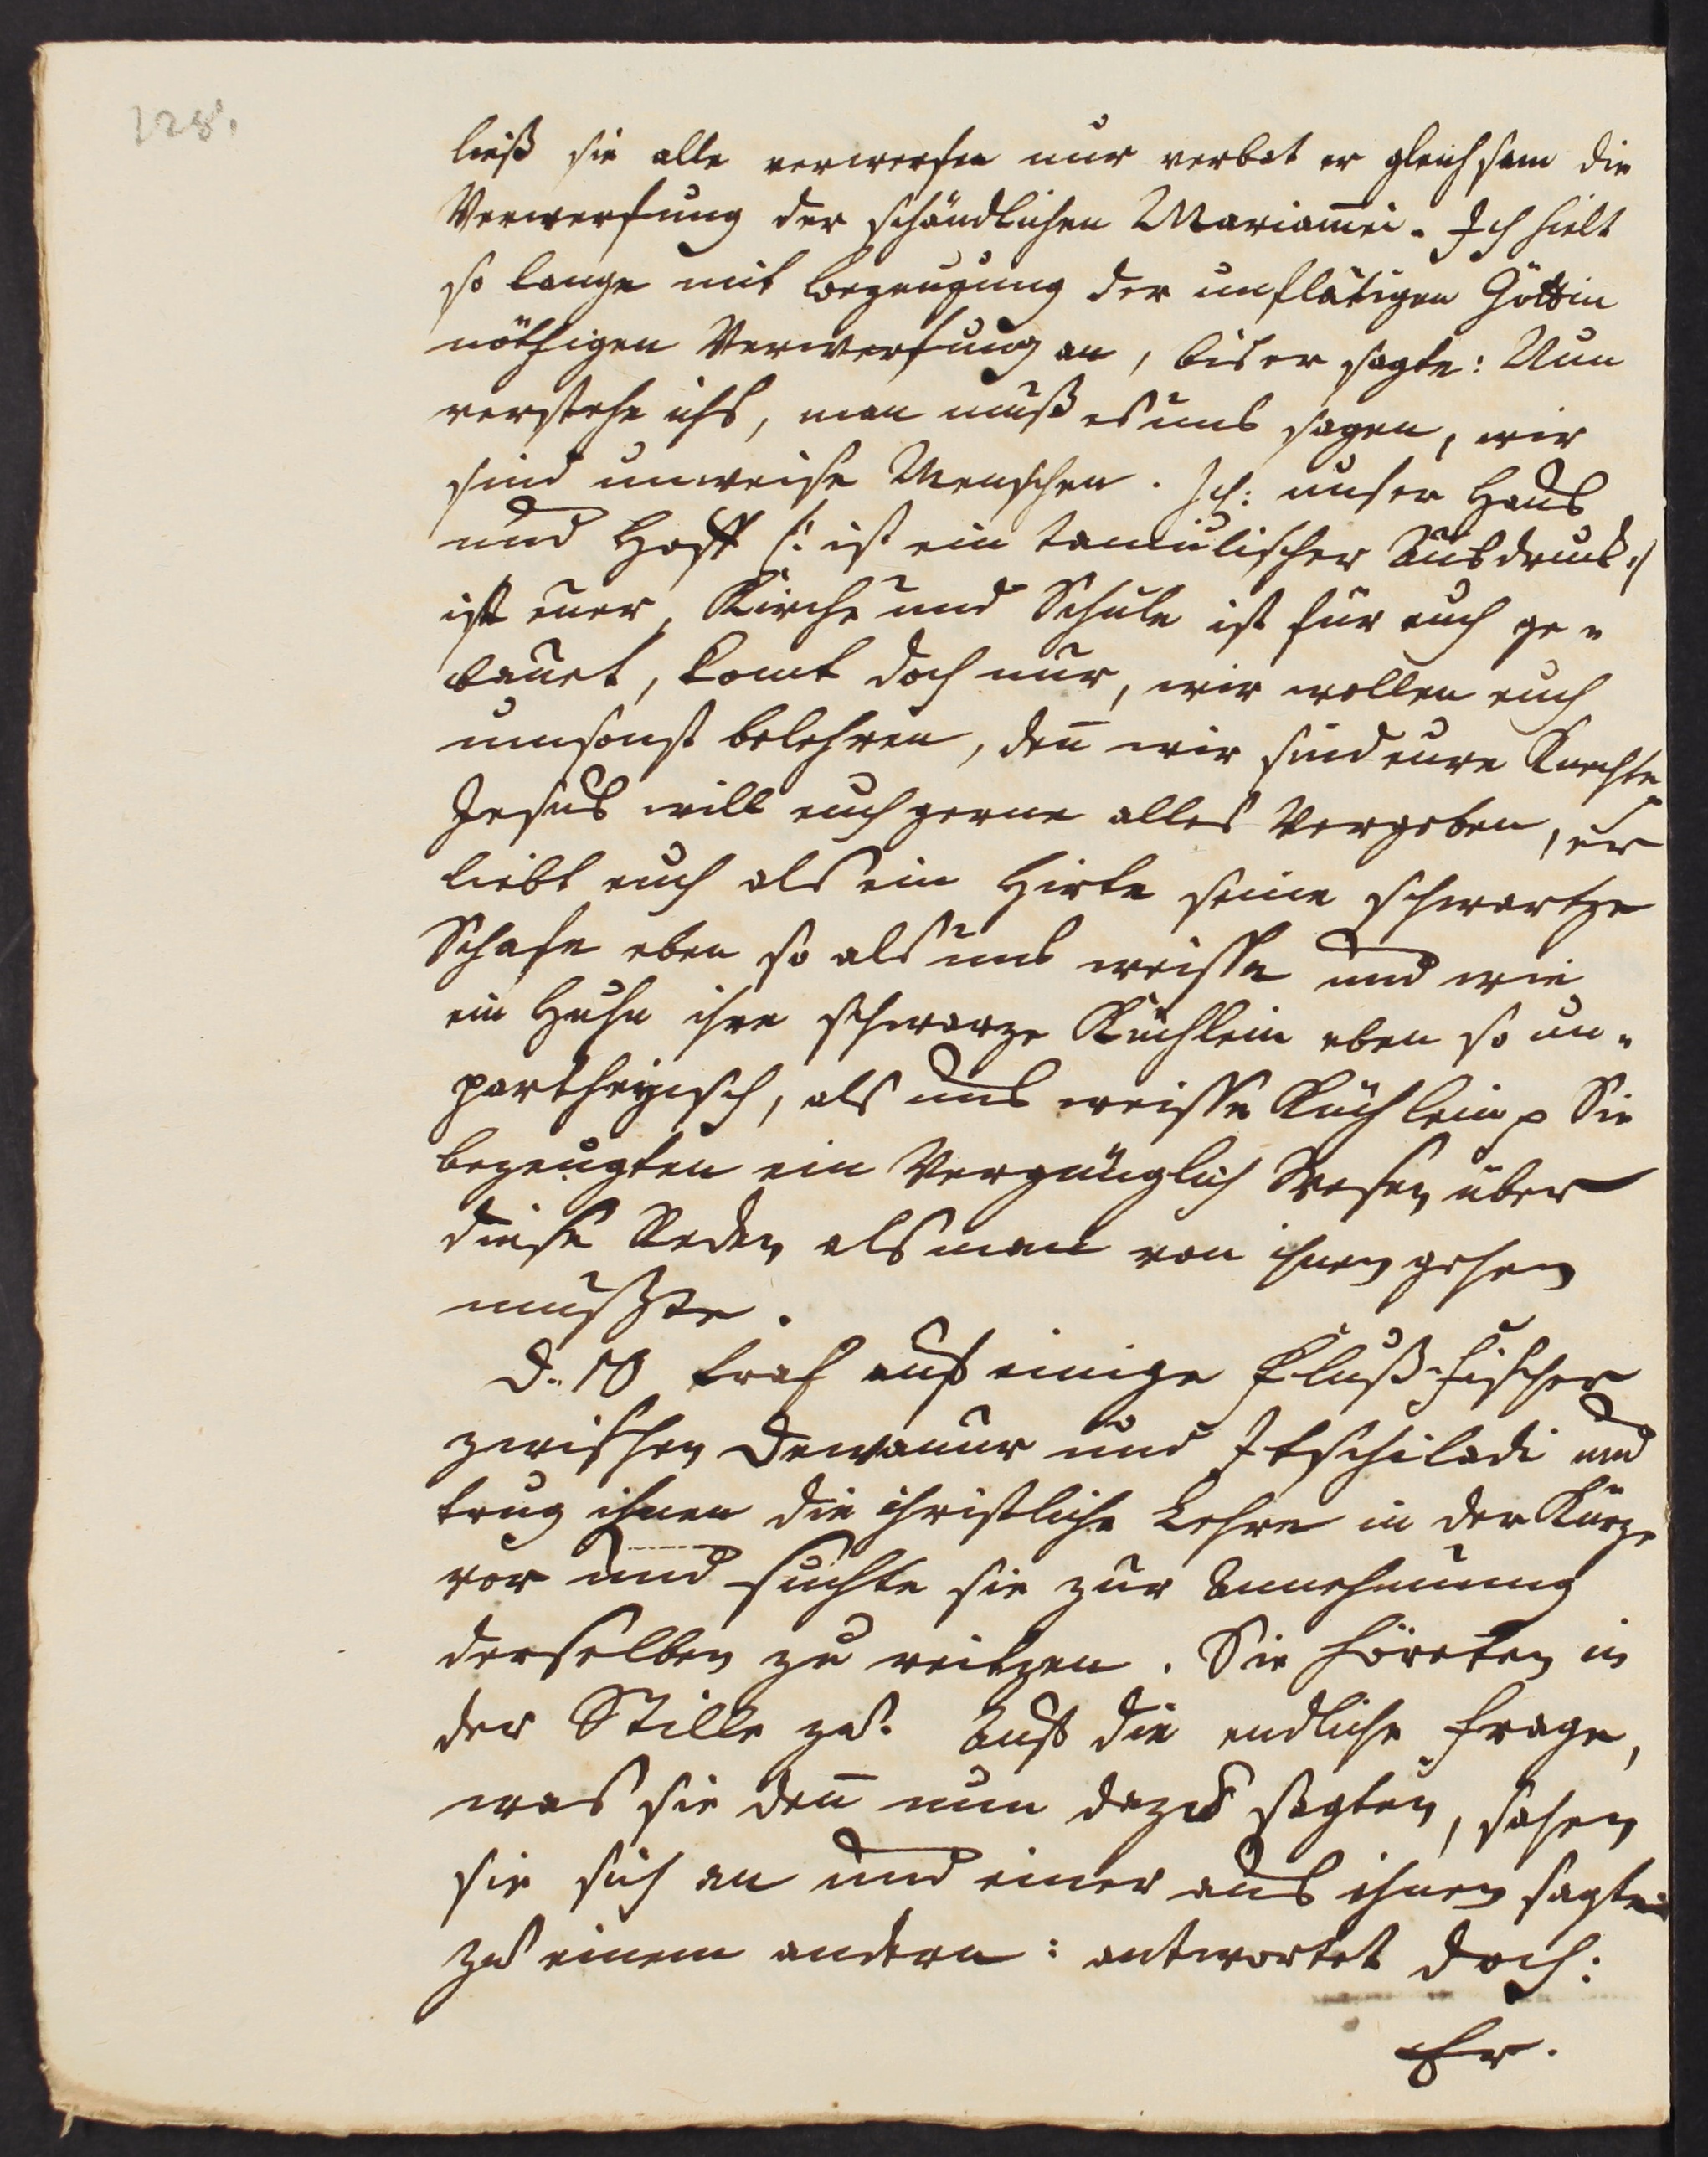 128.
ließ sie alle verwerfen nur verbat er gleichsam die
Verwerfung der schändlichen Mariam̄ei. Ich hielt
so lange mit Bezeugung der unflätigen Göttin
nöthigen Verwerfung an, bis er sagte: Nun
verstehe ichs, man muß es uns sagen, wir
sind unweise Menschen. Ich: unser Haus
und Hoff /: ist ein tamulischer Ausdruck :/
ist euer, Kirche und Schule ist für euch ge-
bauet, komt doch nur, wir wollen euch
umsonst belehren, den̄ wir sind eure Knechte
Jesus will euch gerne alles vergeben, er
liebt euch als ein Hirte seine schwartze
Schafe eben so als uns weisse und wie
ein Huhn ihre schwarze Küchlein eben so un-
partheyisch, als uns weisse Küchlein p Sie
bezeugten ein vergnüglich Wesen über
diese Reden als man von ihnen gehen
mußte.
D. 10 traf auf einige Fluß-Fischer
zwischen Dewanur und Itschiladi und
trug ihnen die christliche Lehre in der Kürze
vor und suchte sie zur Annehmung
derselben zu reitzen. Sie höreten in
der Stille zu. Auf die endliche Frage,
was sie den̄ nun dazu sagten, sahen
sie sich an und einer aus ihnen sagte
zu einem andern: antwortet doch:
Er.